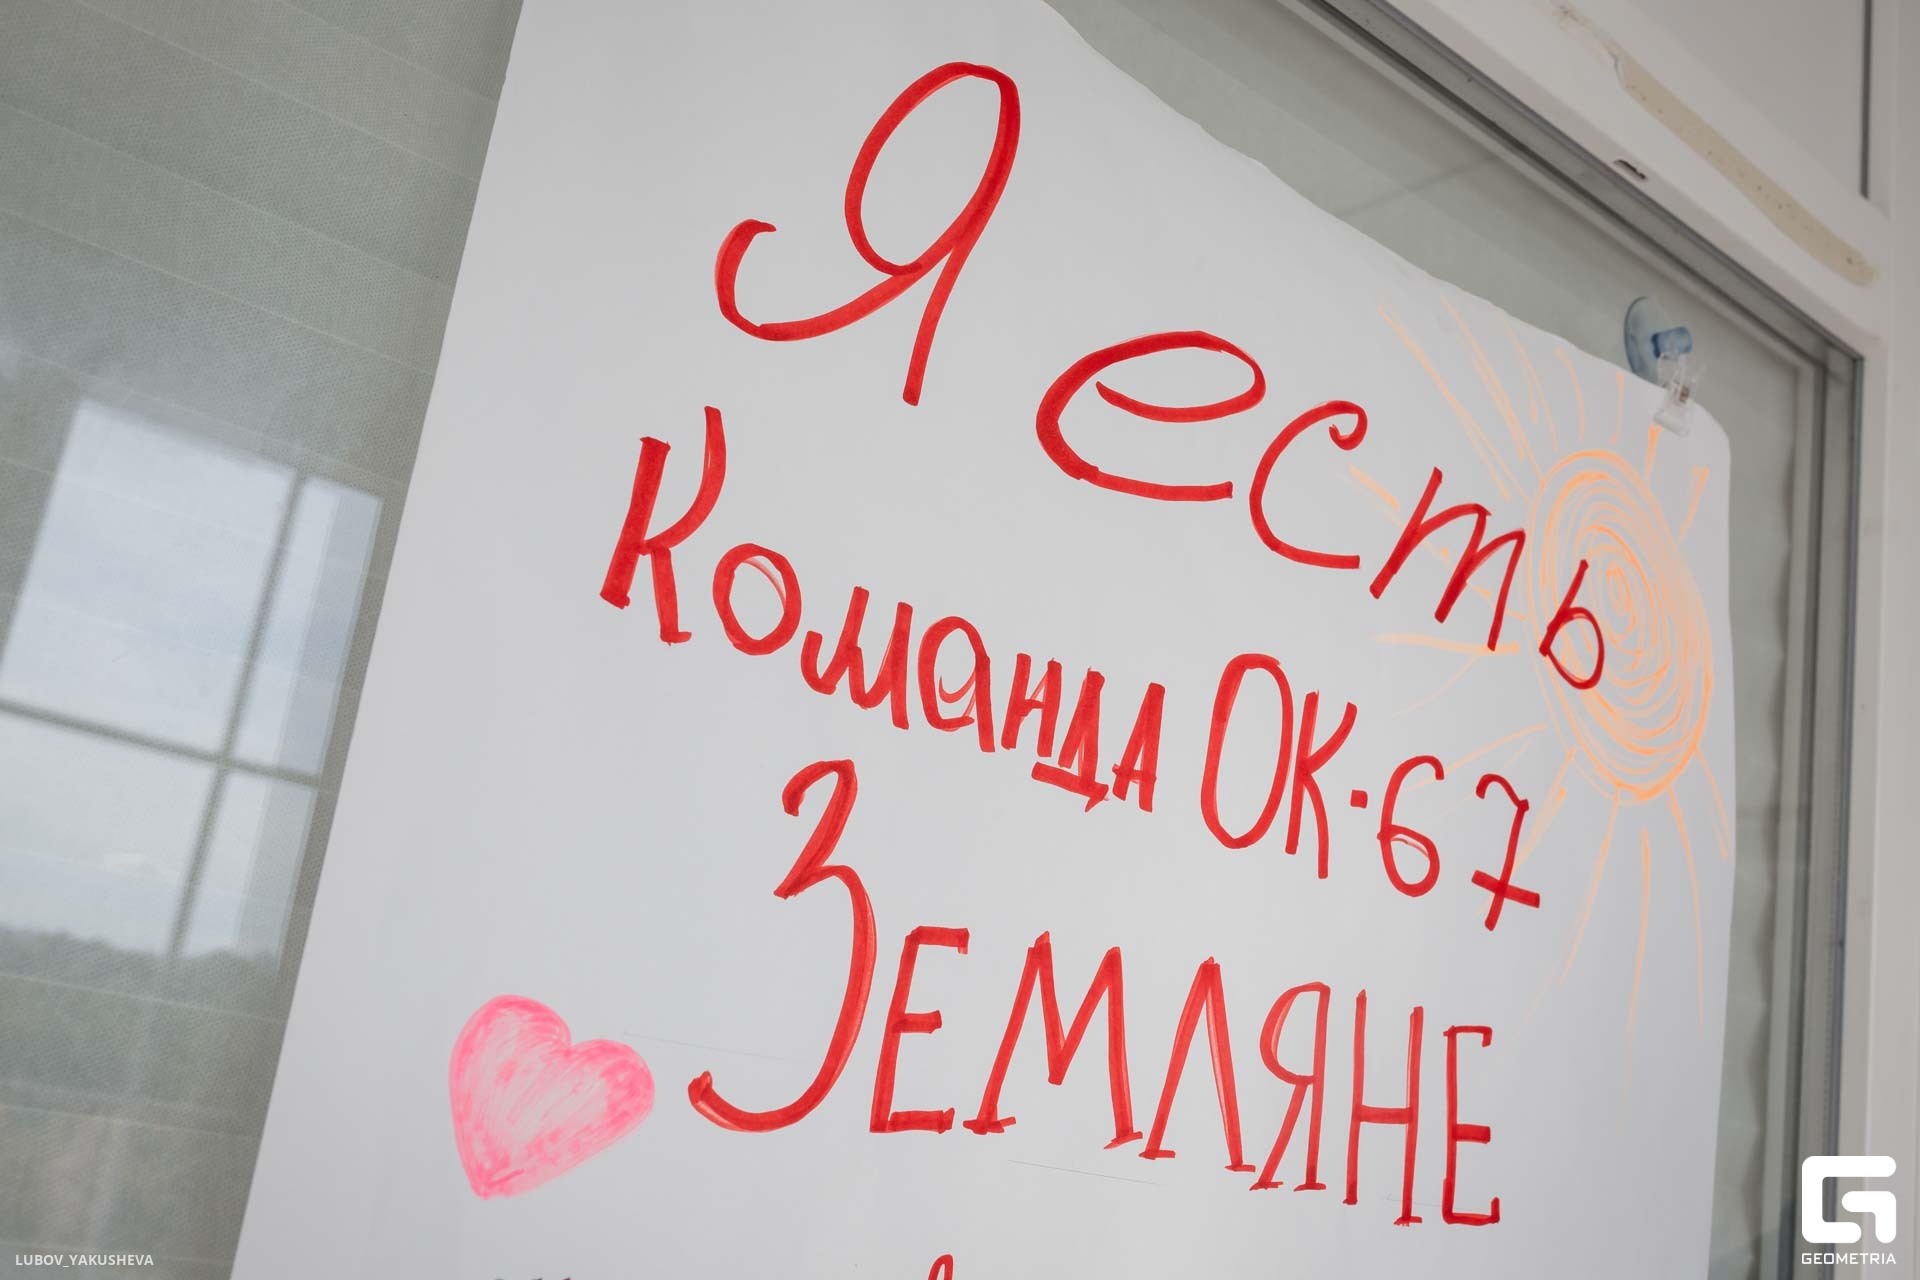 Я есть
Команда ОК-67
ЗЕМЛЯНЕ
LUBOV_YAKUSHEVA
GEOMETRIA